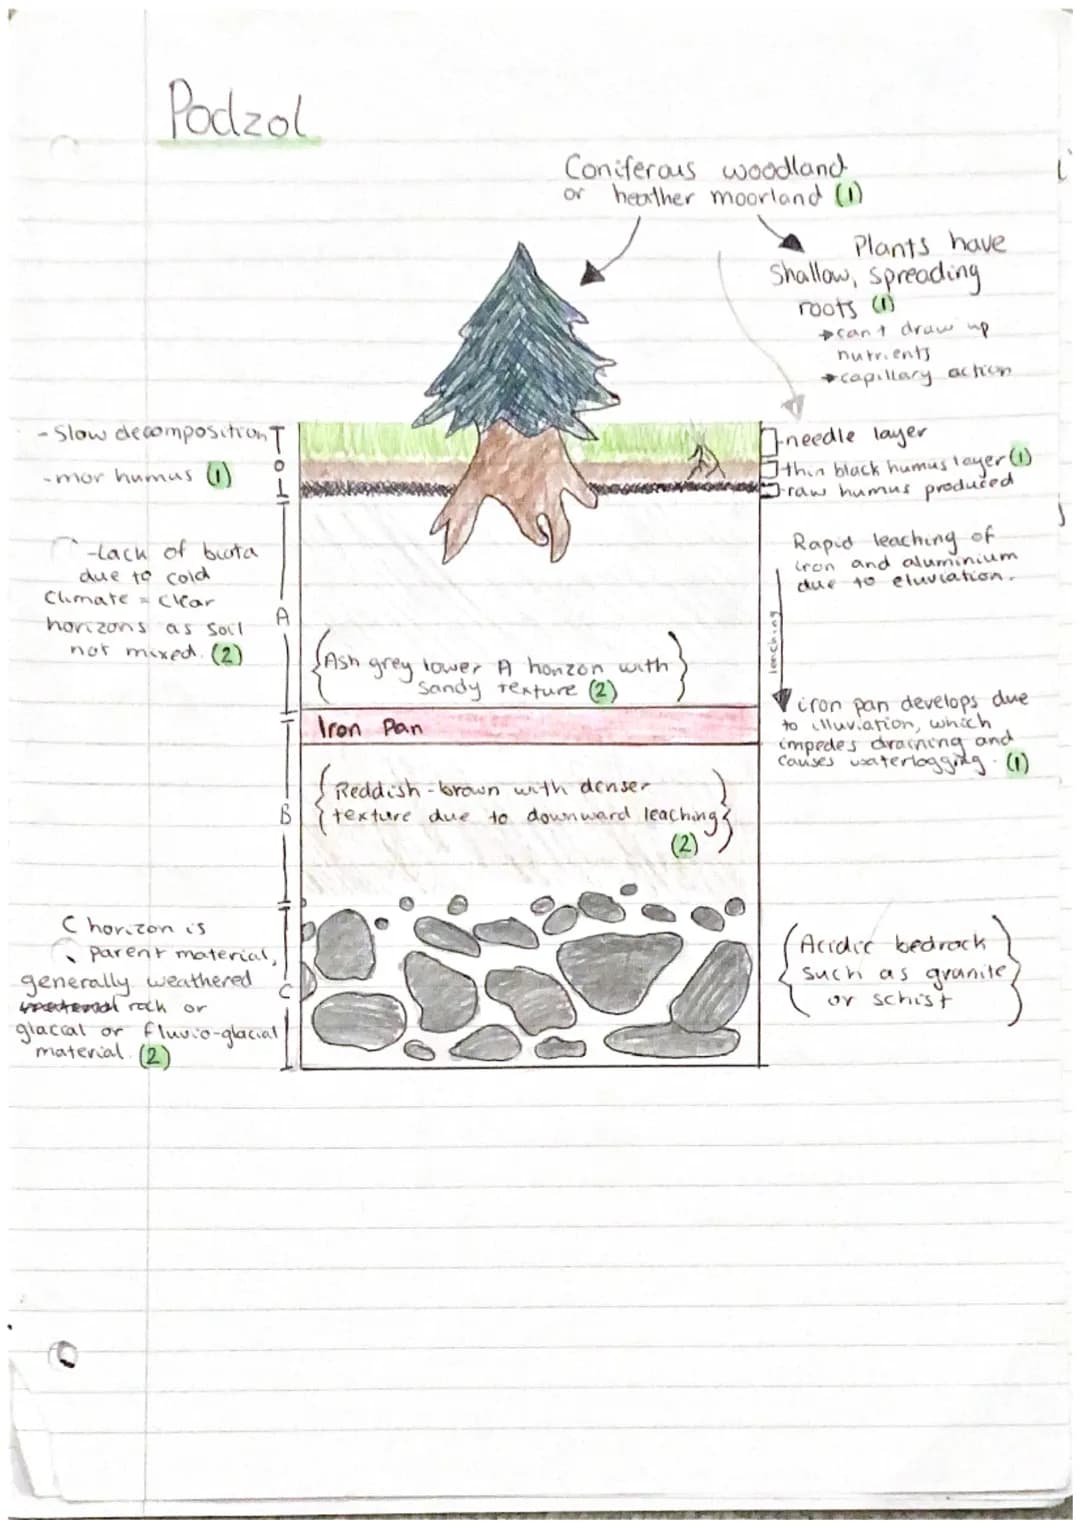 Podzol
Coniferous woodland
or heather moorland (1)
Plants have
shallow, spreading
roots (1)
→can't draw up
nutrients
→capillary action
-Slow decomposition
-mor humus (1)
O
-needle layer
-thin black humus layer (1)
-raw humus produced
-Lack of biota
due to cold
Climate = clear
horizons as soil
not mixed. (2)
A
Rapid leaching of
iron and aluminium
due to eluviation.
leaching
{Ash grey lower A horizon with
sandy texture (2)}
Iron Pan
iron pan develops due
to illuviation, which
impedes draining and
causes waterlogging. (1)
B
{Reddish-brown with denser
texture due to downward leaching}
(2)
C horizon is
parent material,
generally weathered
rock or
glacial or fluvio-glacial
material. (2)
C
{Acidic bedrock
such as granite
or schist}